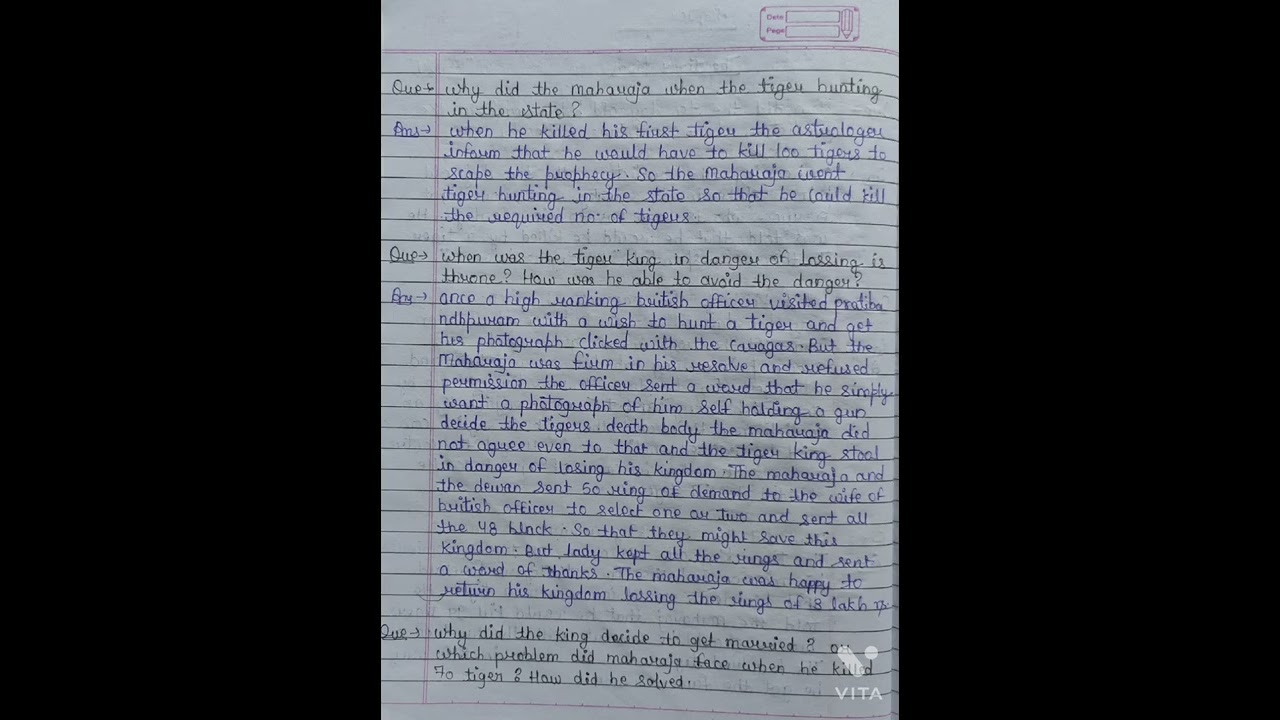 Date
Page
Que→ why did the maharaja when the tiger hunting
in the state?
Ans→ when he killed his first tiger the astrologer
inform that he would have to kill 100 tigers to
scape the prophecy. So the Maharaja went
tiger hunting in the state so that he could kill
the required no. of tigers.
Que→ when was the tiger king in danger of lossing is
throne? How was he able to avoid the danger?
Ans→ once a high ranking british officer visited pratiba
ndbpuram with a wish to hunt a tiger and get
his photograph clicked with the caragas. But the
Maharaja was firm in his resolve and refused
permission the officer sent a word that he simply
want a photograph of him self holding a gun
decide the tigers death body the maharaja did
not agree even to that and the tiger king stool
in danger of losing his kingdom. The maharaja and
the dewan sent 50 ring of demand to the wife of
british officer to select one or two and sent all
the 48 blnck. So that they might save this
Kingdom. But lady kept all the rings and sent
a word of thanks. The maharaja was happy to
return his kingdom lossing the rings of 3 lakh rs.
Que→ why did the king decide to get married? or
which problem did maharaja face when he killed
70 tiger? How did he solved.
VITA